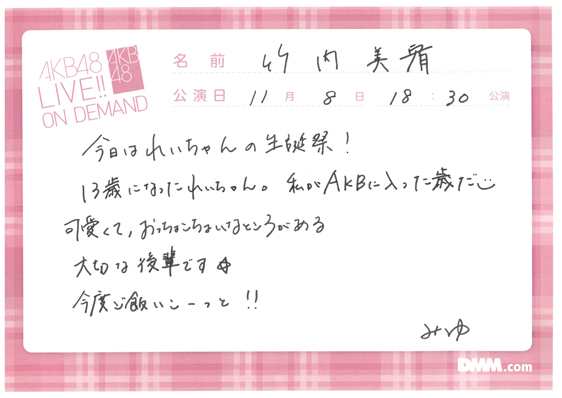 AKB48
LIVE!!
ON DEMAND
AKB
48
名前 竹内美宥
公演日 11月8日 18:30公演
今日はれいちゃんの生誕祭!
13歳になったれいちゃん。私がAKBに入った歳だ
可愛くて、おっちょこちょいなところがある
大切な後輩です☆
今度ご飯いこーっと!!
みゆ
DMM.com